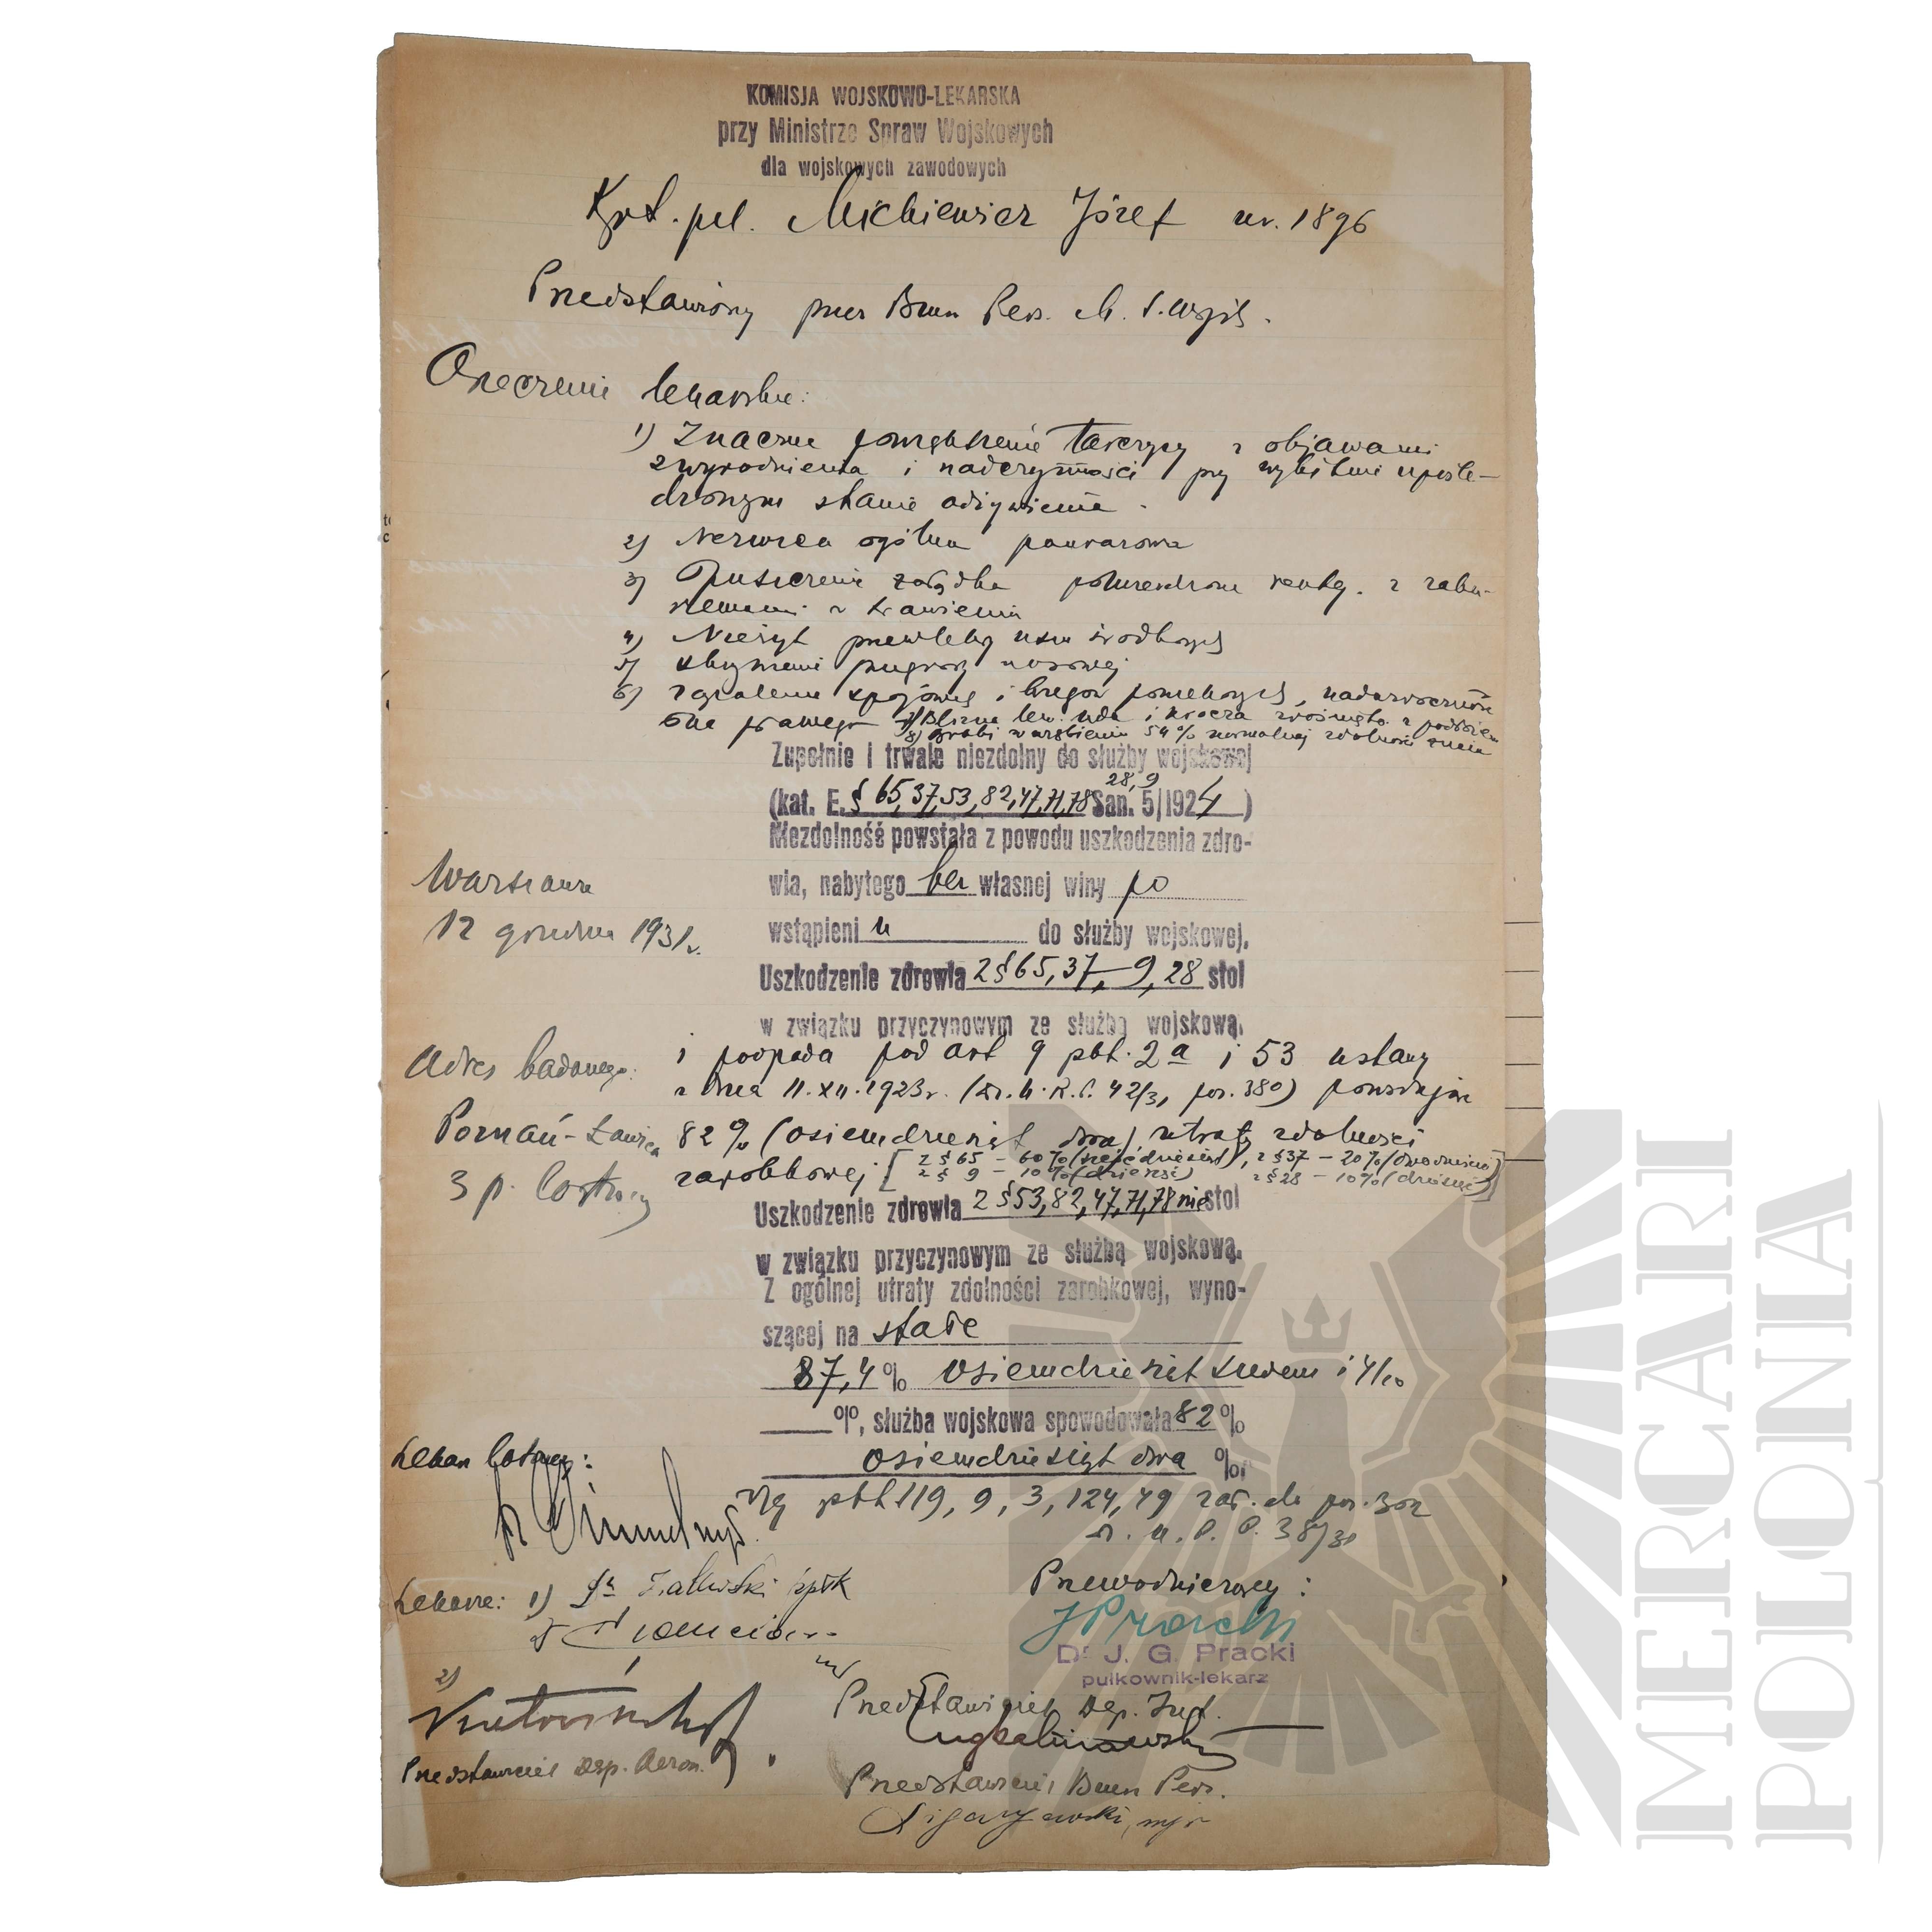 KOMISJA WOJSKOWO-LEKARSKA
przy Ministrze Spraw Wojskowych
dla wojskowych zawodowych
Kpt. pil. Michiewicz Józef ur. 1896
Przedstawiony przez Biuro Pers. M. S. Wojsk.
Orzeczenie lekarskie:
1) Znaczne powiększenie tarczycy z objawami
zwyrodnienia i nadczynności przy wybitnie upośle-
dzonym stanie odżywienia.
2) Nerwica ogólna pourazowa
3) Opuszczenie żołądka z zabu-
rzeniami w trawieniu
4) Nieżyt przewlekły uszu środkowych
5) Skrzywienie przegrody nosowej
6) zgrubienie spojówek i brzegów powiekowych, nadwzroczność
oka prawego 7) Blizna lew. uda i krocza
8) 54% normalnej zdolności żucia
Zupełnie i trwale niezdolny do służby wojskowej
28, 9
(kat. E. § 65, 37, 53, 82, 47, 71, 78 San. 5/1924)
Niezdolność powstała z powodu uszkodzenia zdro-
wia, nabytego bez własnej winy po
wstąpieniu do służby wojskowej.
Warszawa
12 grudnia 1931 r.
Uszkodzenie zdrowia z § 65, 37, 9, 28 stoi
w związku przyczynowym ze służbą wojskową.
i podpada pod art 9 pkt. 2a i 53 ustawy
z dnia 11.XII.1923 r. (Dz. U. R. P. 42/31 poz. 380) powodując
82% (osiemdziesiąt dwa) utraty zdolności
zarobkowej [z § 65 – 60% (sześćdziesiąt), z § 37 – 20% (dwadzieścia)
z § 9 – 10% (dziesięć) z § 28 – 10% (dziesięć)]
Adres badanego:
Poznań-Ławica
3 p. lotniczy
Uszkodzenie zdrowia z § 53, 82, 47, 71, 78 nie stoi
w związku przyczynowym ze służbą wojskową.
Z ogólnej utraty zdolności zarobkowej, wyno-
szącej na stałe
87,4% osiemdziesiąt siedem i 4/10
%, służba wojskowa spowodowała 82%
osiemdziesiąt dwa %.
wg pkt 119, 9, 3, 124, 49 zał. do poz. 302
Dz. U. R. P. 38/31
Lekarz lotniczy:
Lekarze: 1) Dr ppłk
2)
Przedstawiciel Dep. Aeron.
Przewodniczący:
JPracki
Dr J. G. Pracki
pułkownik-lekarz
Przedstawiciel Dep. Int.
Przedstawiciel Biura Pers.
mjr
MERCARI
POLONIA